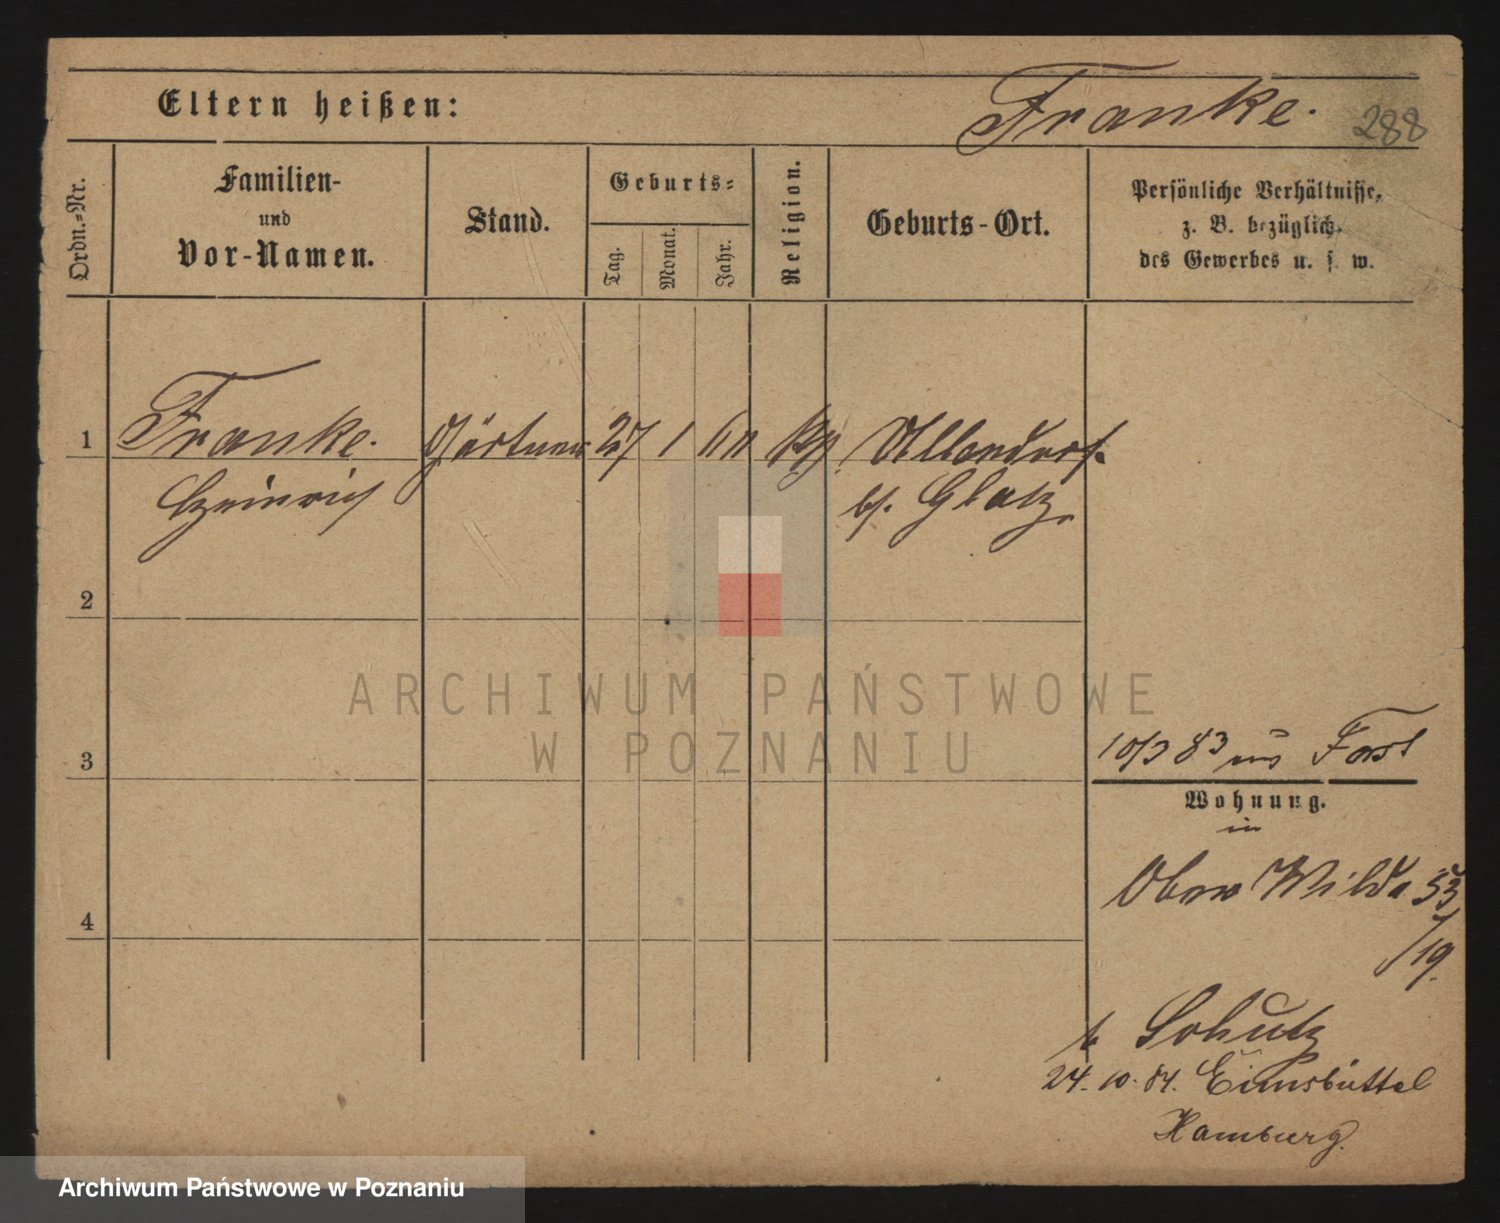 Eltern heißen: Franke. 288
Ordn.-Nr.
Familien-
und
Vor-Namen.
Stand.
Geburts-
Tag.
Monat.
Jahr.
Religion.
Geburts-Ort.
Persönliche Verhältnisse,
z. B. bezüglich
des Gewerbes u. s. w.
1 Franke. Gärtner 27 1 60 Altendorf.
Heinrich bf. Glatz
2
3
10/3 83 aus Forst
Wohnung.
in
Ober Wilda 53
/19.
4
b Schutz
24. 10. 84. Eimsbüttel
Hamburg.
ARCHIWUM PAŃSTWOWE
W POZNANIU
Archiwum Państwowe w Poznaniu